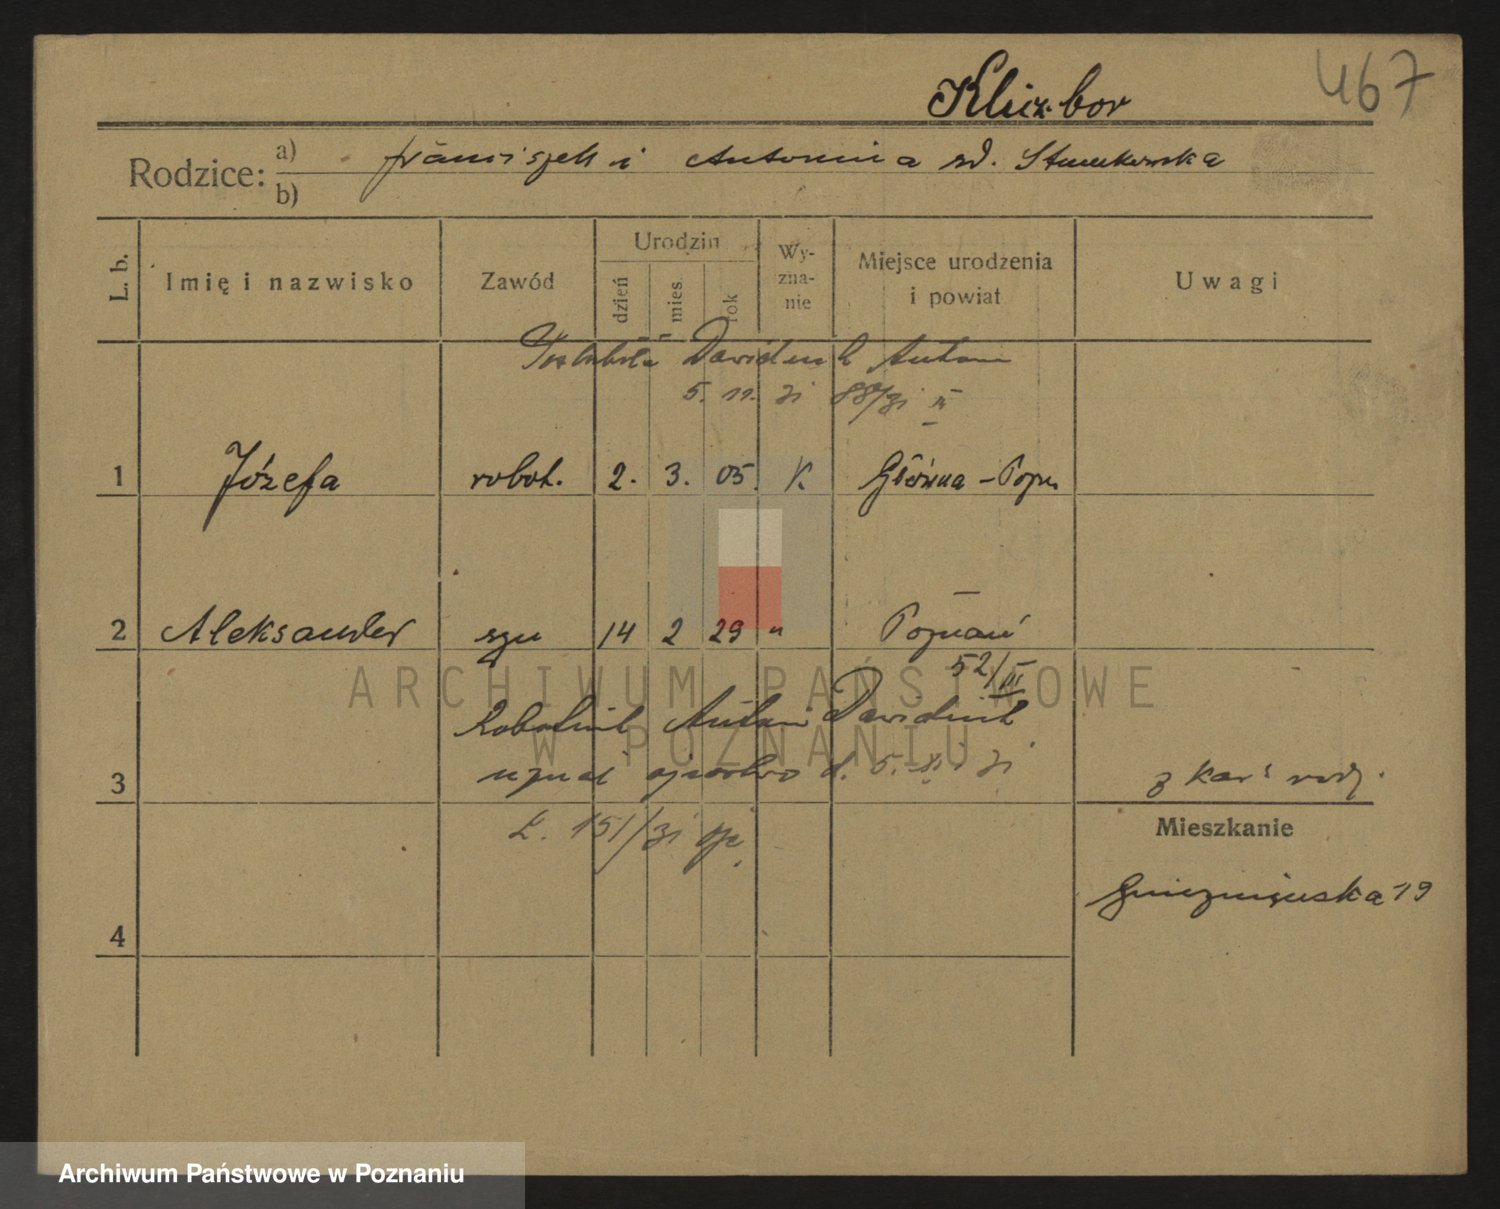 467
Kluzbor
Rodzice: a) Franciszek i Antonina zd.
b)
L. b. Imię i nazwisko Zawód Urodzin dzień mies. rok Wyznanie Miejsce urodzenia i powiat Uwagi
Poślubiła Dawidnik Antoni
5. 11. 31
1 Józefa robot. 2. 3. 05. K Główna - Pozn.
2 Aleksander syn 14 2 29 " Poznań
52/III
Robotnik Antoni Dawidnik
uznał ojcostwo d. 5. XI 31
3 z kar. rodz.
Mieszkanie
Gnieźnieńska 19
4
ARCHIWUM PAŃSTWOWE
W POZNANIU
Archiwum Państwowe w Poznaniu